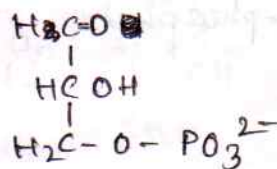 HC=O
HC OH
H₂C-O-PO₃²⁻